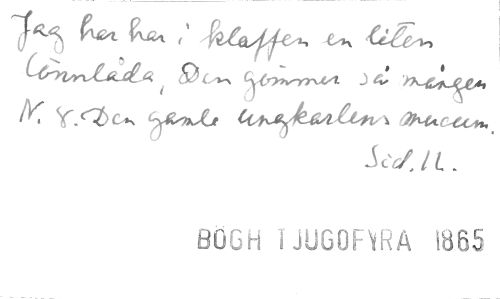 Jag har här i klaffen en liten
lönnlåda, Den gömmer så mången
N. 8. Den gamle ungkarlens museum.
Sid. 12.
BÖGH TJUGOFYRA 1865